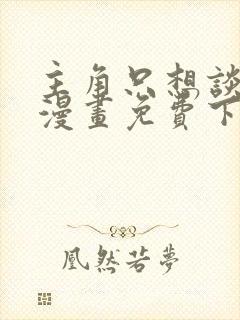 主角只想談
漫畫免費下
凰然若夢